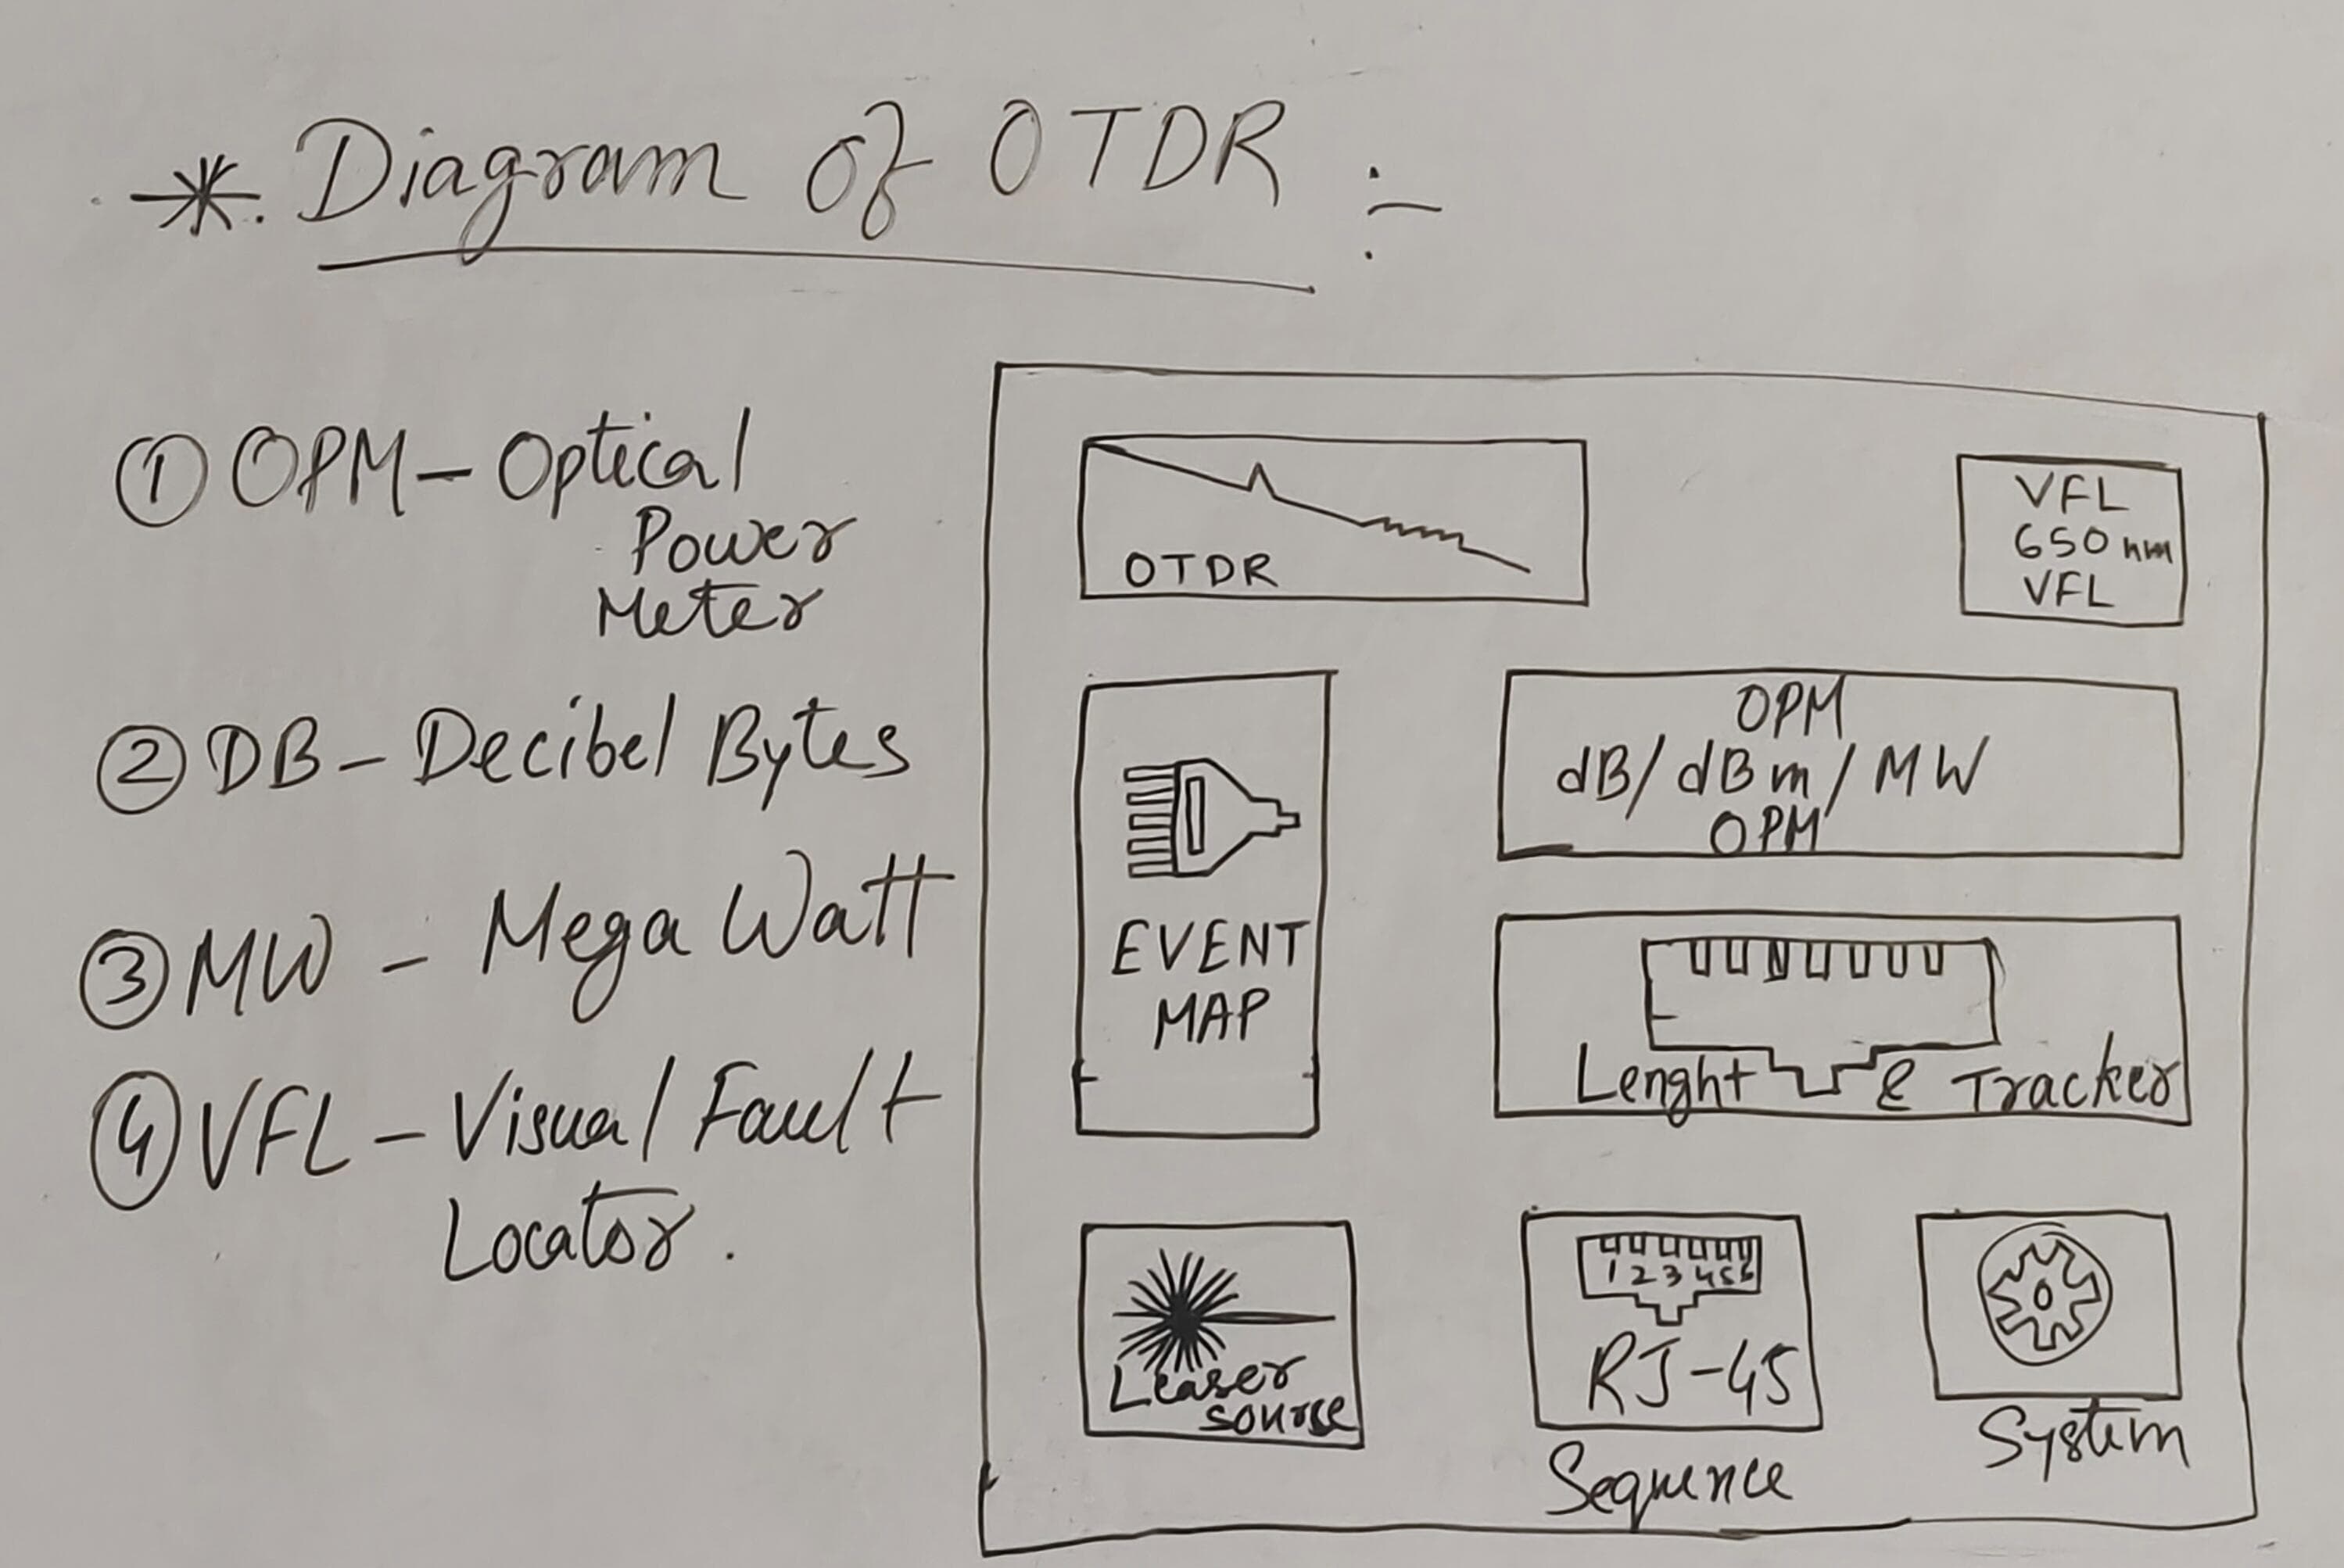 *. Diagram of OTDR :-
① OPM - Optical
Power
Meter
② DB - Decibel Bytes
③ MW - Mega Watt
④ VFL - Visual Fault
Locator.
OTDR
VFL
650 nm
VFL
OPM
dB/dBm/MW
OPM
EVENT
MAP
Lenght & Tracker
Leaser
sourse
1 2 3 4 5 6
RJ-45
Sequence
System